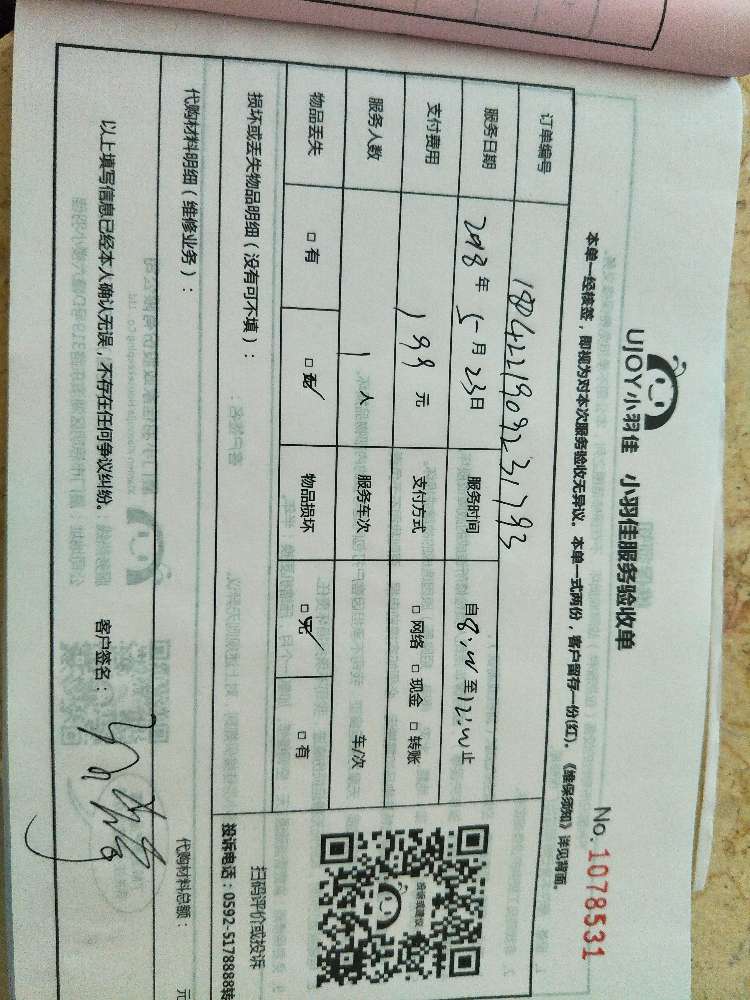 UJOY小羽佳 小羽佳服务验收单
No. 1078531
本单一经核签，即视为对本次服务验收无异议。本单一式两份，客户留存一份(红)。《维保须知》详见背面。
订单编号 18042219092231793
服务日期 2018年5月23日 服务时间 自8:00至12:00止
支付费用 199元 支付方式 □网络 □现金 □转账
服务人数 1人 服务车次 车/次
物品丢失 □有 □无 物品损坏 □无 □有
损坏或丢失物品明细（没有可不填）：
扫码评价或投诉
投诉电话：0592-5178888转
代购材料明细（维修业务）：
代购材料总额： 元
以上填写信息已经本人确认无误，不存在任何争议纠纷。 客户签名：